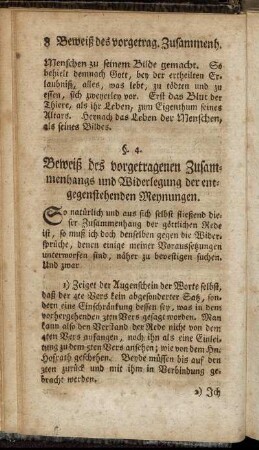 8 Beweiß des vorgetrag. Zusammenh.
Menschen zu seinem Bilde gemacht. So
behielt demnach Gott, bey der ertheilten Er-
laubniß, alles, was lebe, zu tödten und zu
essen, sich zweyerley vor. Erst das Blut der
Thiere, als ihr Leben, zum Eigenthum seines
Altars. Hernach das Leben der Menschen,
als seines Bildes.
§. 4.
Beweiß des vorgetragenen Zusam-
menhangs und Widerlegung der ent-
gegenstehenden Meynungen.
So natürlich und aus sich selbst fliessend die-
ser Zusammenhang der göttlichen Rede
ist, so muß ich doch denselben gegen die Wider-
sprüche, denen einige meiner Voraussetzungen
unterworfen sind, näher zu bevestigen suchen.
Und zwar
1) Zeiget der Augenschein der Worte selbst,
daß der 4te Vers kein abgesonderter Satz, son-
dern eine Einschränkung dessen sey, was in dem
vorhergehenden 3ten Vers gesagt worden. Man
kann also den Verstand der Rede nicht von dem
4ten Vers anfangen, noch ihn als eine Einlei-
tung zu dem 5ten Vers ansehen; wie von dem Hn.
Hofrath geschehen. Beyde müssen bis auf den
3ten zurück und mit ihm in Verbindung ge-
bracht werden.
2) Ich